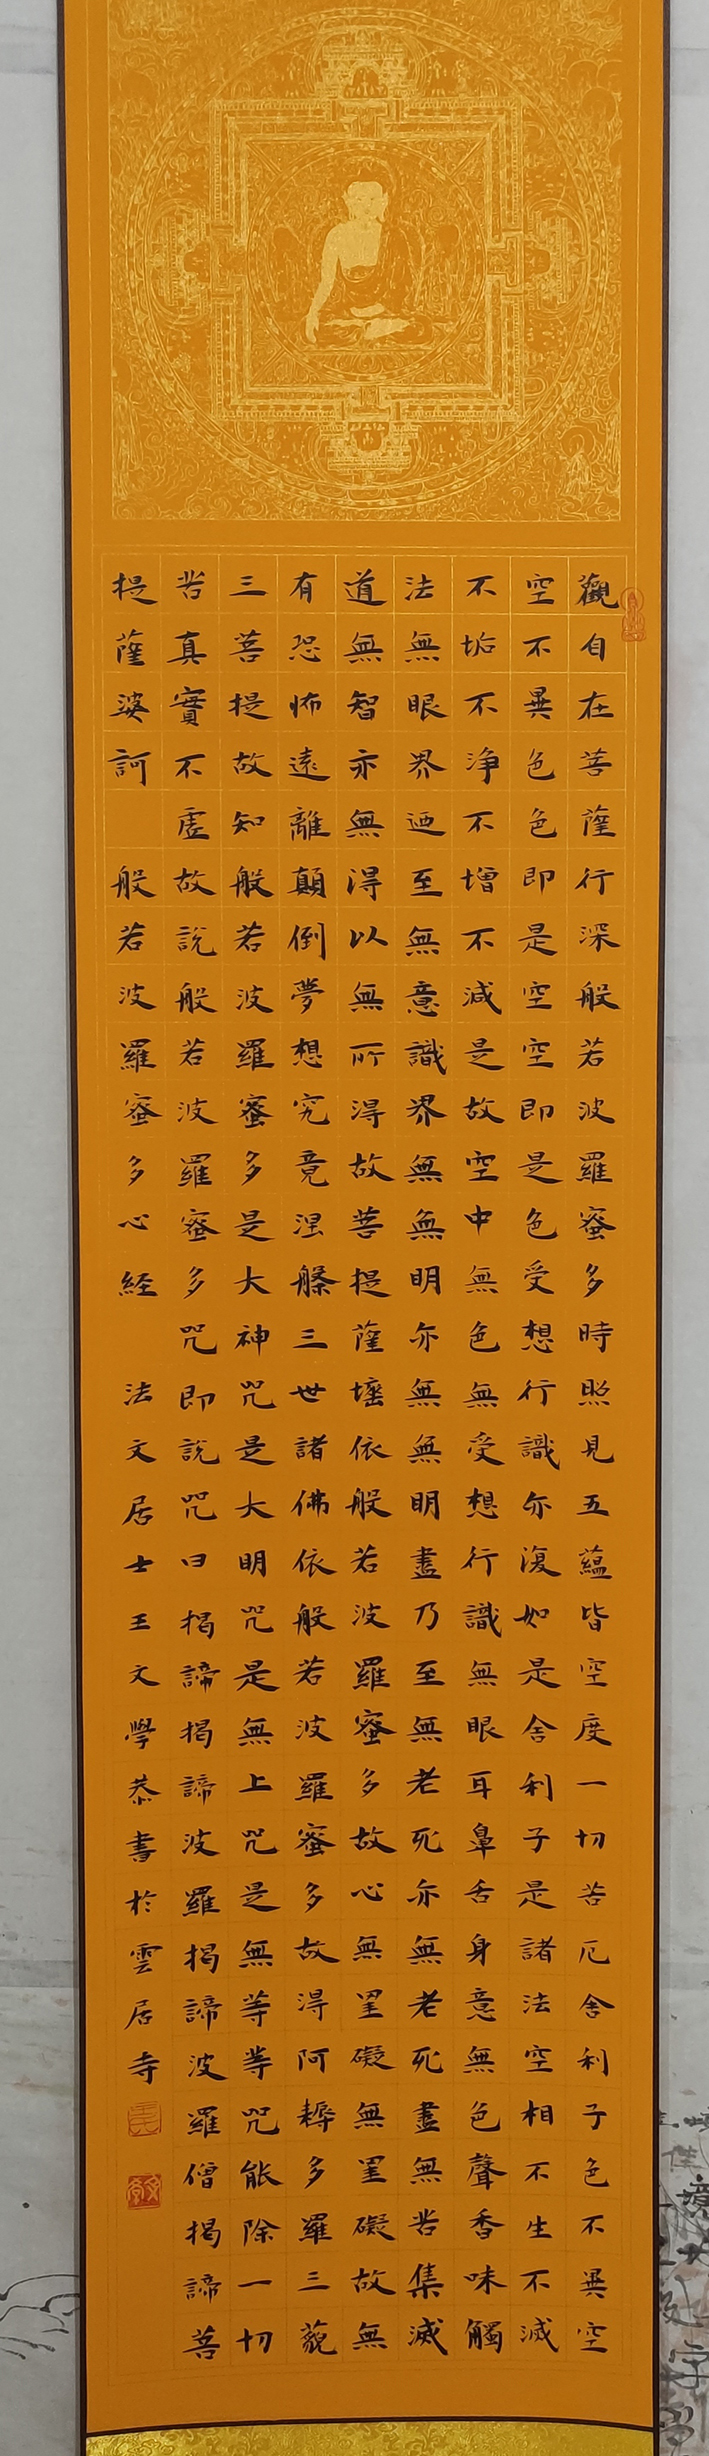 觀自在菩薩行深般若波羅蜜多時照見五蘊皆空度一切苦厄舍利子色不異空
空不異色色即是空空即是色受想行識亦復如是舍利子是諸法空相不生不滅
不垢不淨不增不減是故空中無色無受想行識無眼耳鼻舌身意無色聲香味觸
法無眼界迺至無意識界無無明亦無無明盡乃至無老死亦無老死盡無苦集滅
道無智亦無得以無所得故菩提薩埵依般若波羅蜜多故心無罣礙無罣礙故無
有恐怖遠離顛倒夢想究竟涅槃三世諸佛依般若波羅蜜多故得阿耨多羅三藐
三菩提故知般若波羅蜜多是大神咒是大明咒是無上咒是無等等咒能除一切
苦真實不虛故說般若波羅蜜多咒即說咒曰揭諦揭諦波羅揭諦波羅僧揭諦菩
提薩婆訶 般若波羅蜜多心経 法文居士王文學恭書於雲居寺